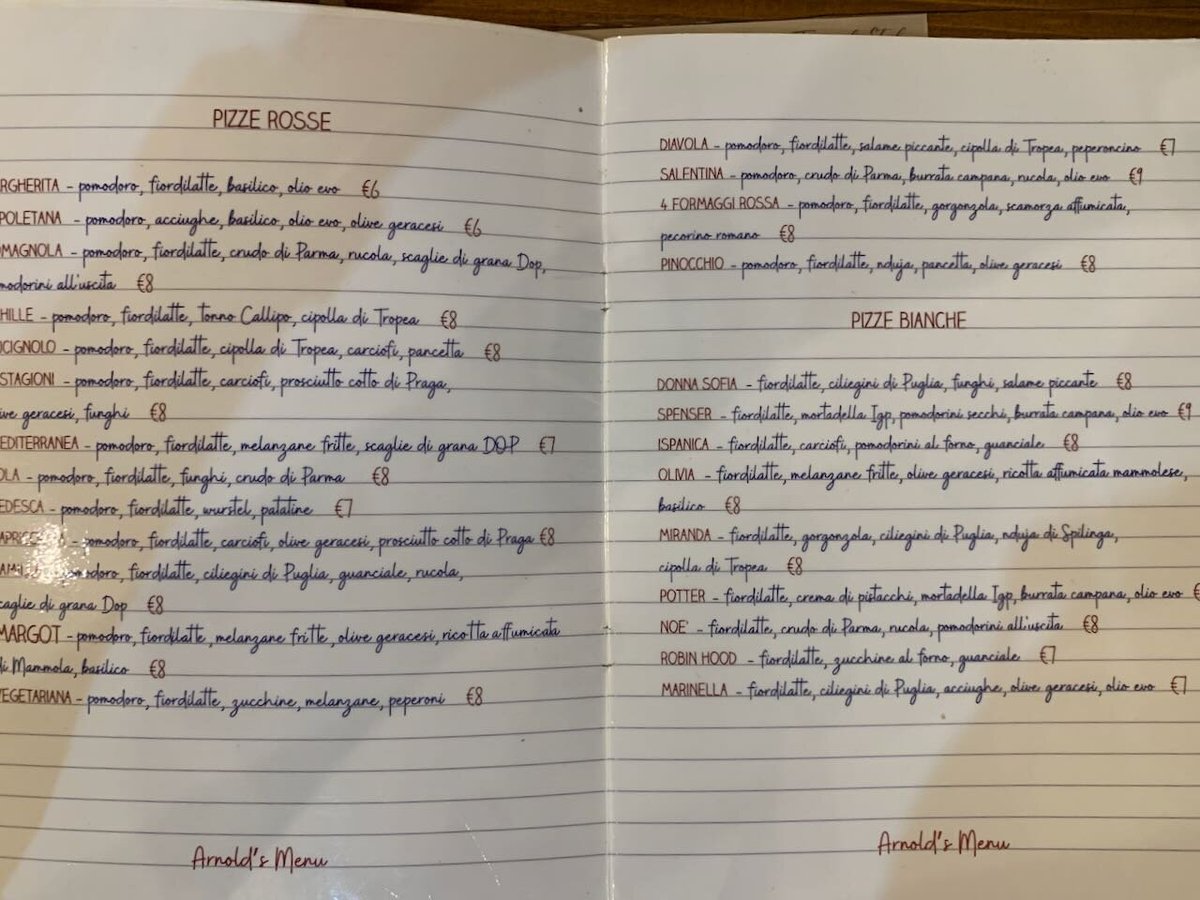 PIZZE ROSSE
RGHERITA - pomodoro, fiordilatte, basilico, olio evo €6
POLETANA - pomodoro, acciughe, basilico, olio evo, olive geracesi €6
MAGNOLA - pomodoro, fiordilatte, crudo di Parma, rucola, scaglie di grana Dop,
modorini all'uscita €8
HILLE - pomodoro, fiordilatte, tonno Callipo, cipolla di Tropea €8
CIGNOLO - pomodoro, fiordilatte, cipolla di Tropea, carciofi, pancetta €8
STAGIONI - pomodoro, fiordilatte, carciofi, prosciutto cotto di Praga,
ive geracesi, funghi €8
EDITERRANEA - pomodoro, fiordilatte, melanzane fritte, scaglie di grana DOP €7
OLA - pomodoro, fiordilatte, funghi, crudo di Parma €8
EDESCA - pomodoro, fiordilatte, wurstel, patatine €7
pomodoro, fiordilatte, carciofi, olive geracesi, prosciutto cotto di Praga €8
fiordilatte, ciliegini di Puglia, guanciale, rucola,
caglie di grana Dop €8
MARGOT - pomodoro, fiordilatte, melanzane fritte, olive geracesi, ricotta affumicata
di Mammola, basilico €8
VEGETARIANA - pomodoro, fiordilatte, zucchine, melanzane, peperoni €8
Arnold's Menu
DIAVOLA - pomodoro, fiordilatte, salame piccante, cipolla di Tropea, peperoncino €7
SALENTINA - pomodoro, crudo di Parma, burrata campana, rucola, olio evo €9
4 FORMAGGI ROSSA - pomodoro, fiordilatte, gorgonzola, scamorza affumicata,
pecorino romano €8
PINOCCHIO - pomodoro, fiordilatte, nduja, pancetta, olive geracesi €8
PIZZE BIANCHE
DONNA SOFIA - fiordilatte, ciliegini di Puglia, funghi, salame piccante €8
SPENSER - fiordilatte, mortadella Igp, pomodorini secchi, burrata campana, olio evo €9
ISPANICA - fiordilatte, carciofi, pomodorini al forno, guanciale €8
OLIVIA - fiordilatte, melanzane fritte, olive geracesi, ricotta affumicata mammolese,
basilico €8
MIRANDA - fiordilatte, gorgonzola, ciliegini di Puglia, nduja di Spilinga,
cipolla di Tropea €8
POTTER - fiordilatte, crema di pistacchi, mortadella Igp, burrata campana, olio evo €
NOE' - fiordilatte, crudo di Parma, rucola, pomodorini all'uscita €8
ROBIN HOOD - fiordilatte, zucchine al forno, guanciale €7
MARINELLA - fiordilatte, ciliegini di Puglia, acciughe, olive geracesi, olio evo €7
Arnold's Menu